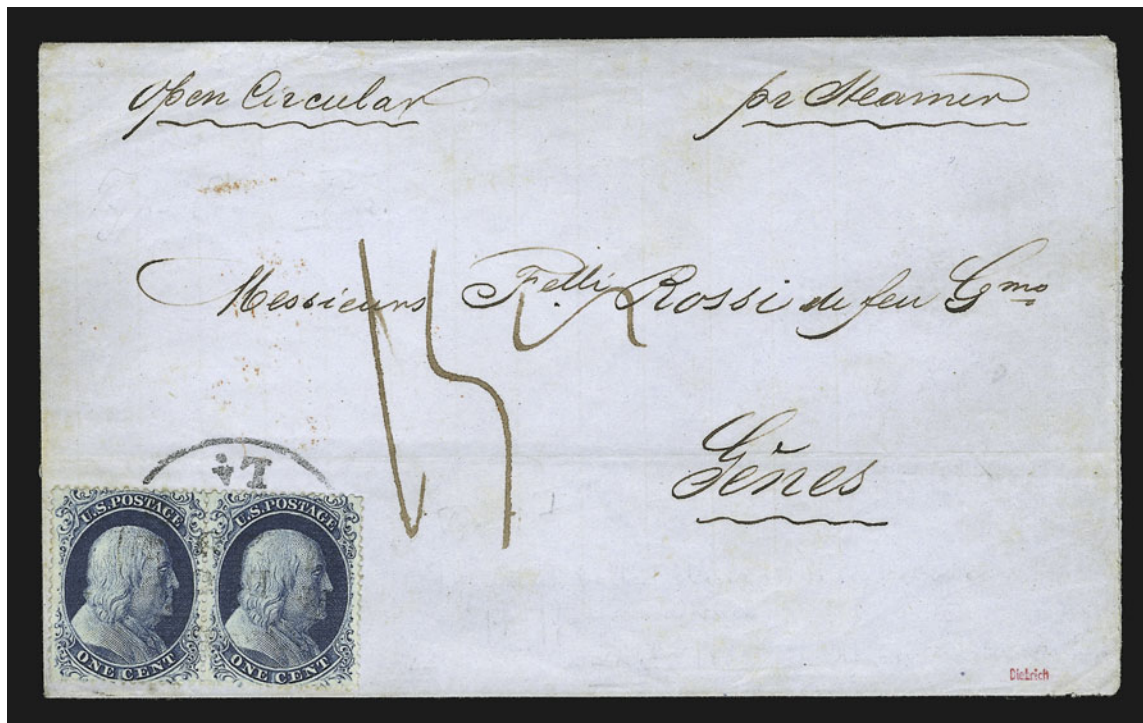 Open Circular pr Steamer
Messieurs F.elli Rossi de feu Gmo
Gênes
La
U.S. POSTAGE U.S. POSTAGE
ONE CENT ONE CENT
Dietrich